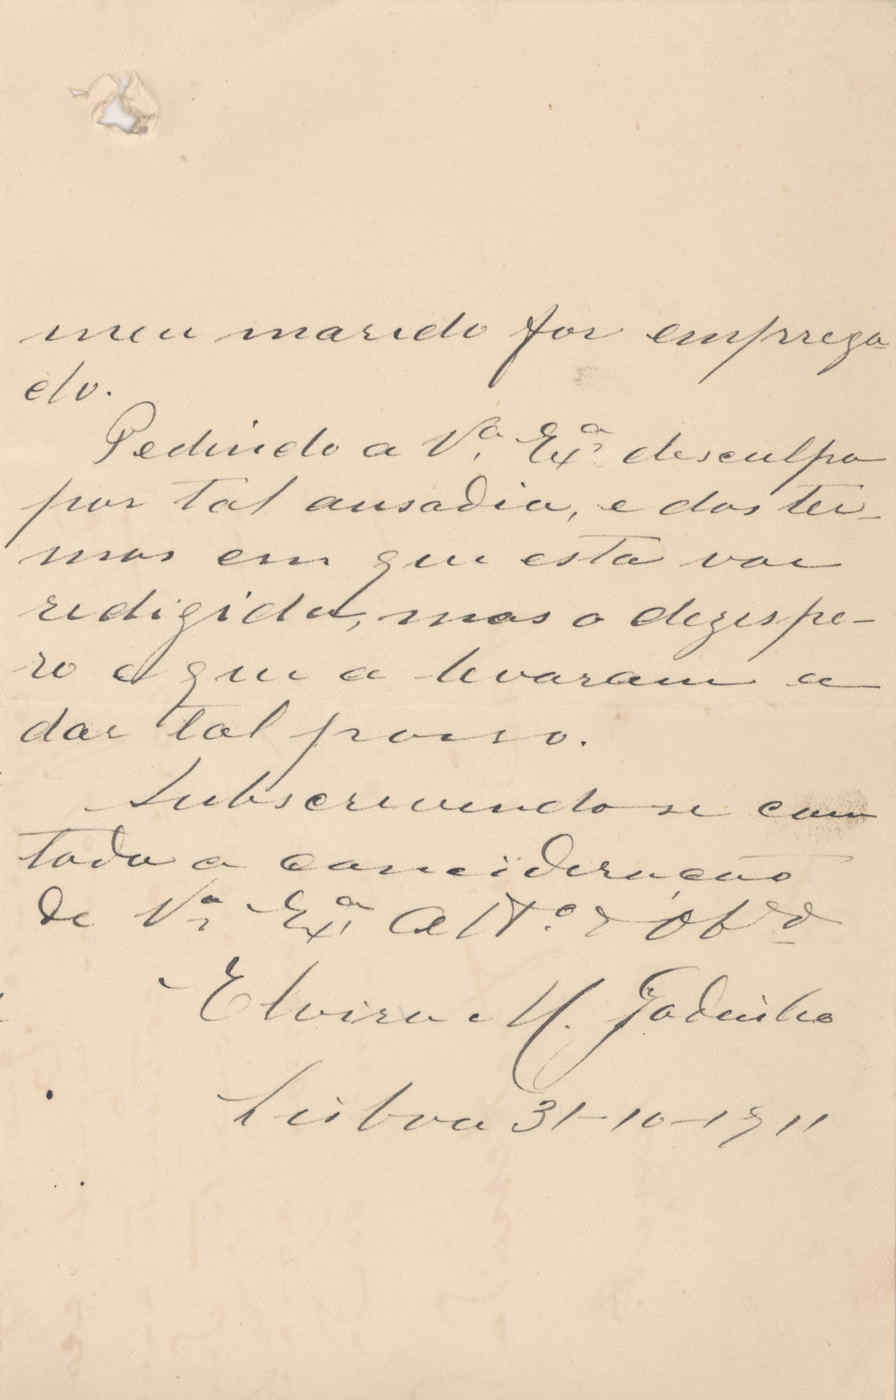 meu marido for emprega-
do.
Pedindo a Vª. Exª. desculpa
por tal ausadia, e dos ter-
mos em que esta vae
redigida, mas o dezespe-
ro é que a levaram a
dar tal passo.
Subscrevendo-se com
toda a concideração
de Vª. Exª. Attª. e Obrdª
Elvira M. Godinho
Lisboa 31-10-1911